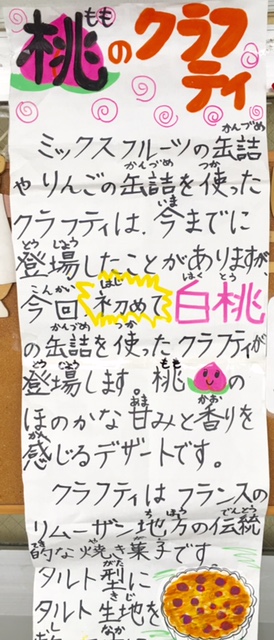 桃のクラフティ
ミックスフルーツの缶詰
やりんごの缶詰を使った
クラフティは、今までに
登場したことがありますが、
今回初めて白桃
の缶詰を使ったクラフティが
登場します。桃の
ほのかな甘みと香りを
感じるデザートです。
クラフティはフランスの
リムーザン地方の伝統
的な焼き菓子です
タルト型に
タルト生地を